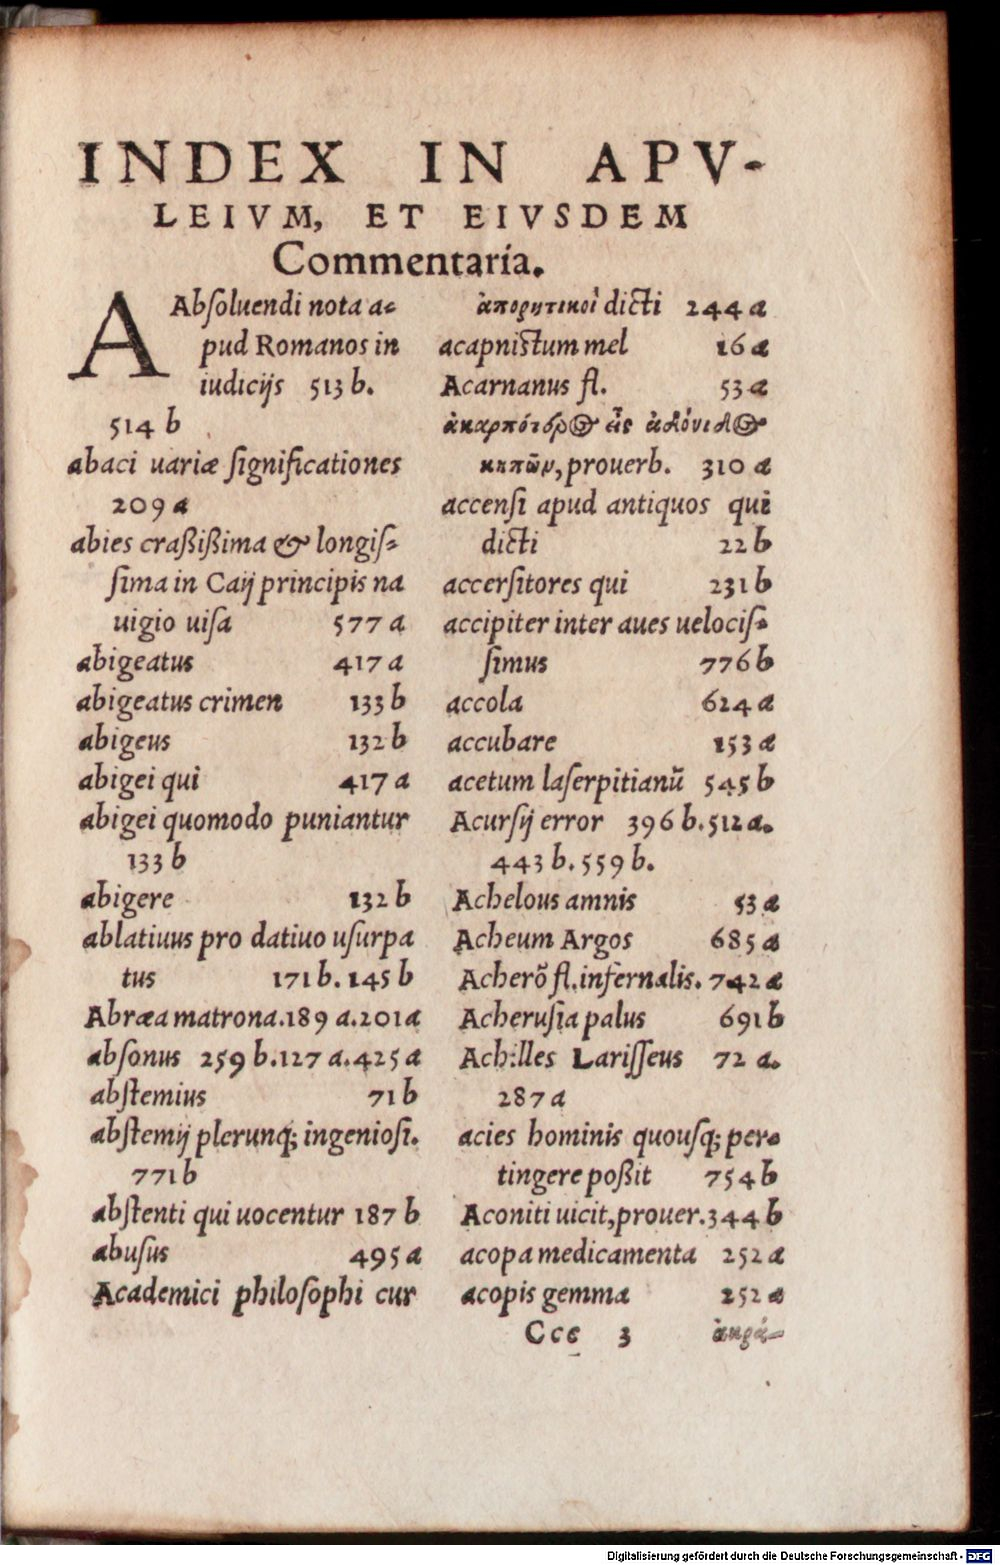 INDEX IN APV-
LEIVM, ET EIVSDEM
Commentaria.
AAbſoluendi nota a-
pud Romanos in
iudicijs 513 b.
514 b
abaci uariæ ſignificationes
209 a
abies craßißima & longiſ-
ſima in Caij principis na
uigio uiſa 577 a
abigeatus 417 a
abigeatus crimen 133 b
abigeus 132 b
abigei qui 417 a
abigei quomodo puniantur
133 b
abigere 132 b
ablatiuus pro datiuo uſurpa
tus 171 b. 145 b
Abræa matrona. 189 a. 201 a
abſonus 259 b. 127 a. 425 a
abſtemius 71 b
abſtemij plerunq; ingenioſi.
771 b
abſtenti qui uocentur 187 b
abuſus 495 a
Academici philoſophi cur
ἀπορητικοὶ dicti 244 a
acapniſtum mel 16 a
Acarnanus fl. 53 a
ἀκαρπότερος εἶς ἀδώνιδος
κηπῶν, prouerb. 310 a
accenſi apud antiquos qui
dicti 22 b
accerſitores qui 231 b
accipiter inter aues uelociſ-
ſimus 776 b
accola 624 a
accubare 153 a
acetum laſerpitianū 545 b
Acurſij error 396 b. 512 a.
443 b. 559 b.
Achelous amnis 53 a
Acheum Argos 685 a
Acherō fl. infernalis. 742 a
Acheruſia palus 691 b
Achilles Lariſſeus 72 a.
287 a
acies hominis quouſq; per-
tingere poßit 754 b
Aconiti uicit, prouer. 344 b
acopa medicamenta 252 a
acopis gemma 252 a
Ccc 3 ἀκρά-
Digitalisierung gefördert durch die Deutsche Forschungsgemeinschaft - DFG